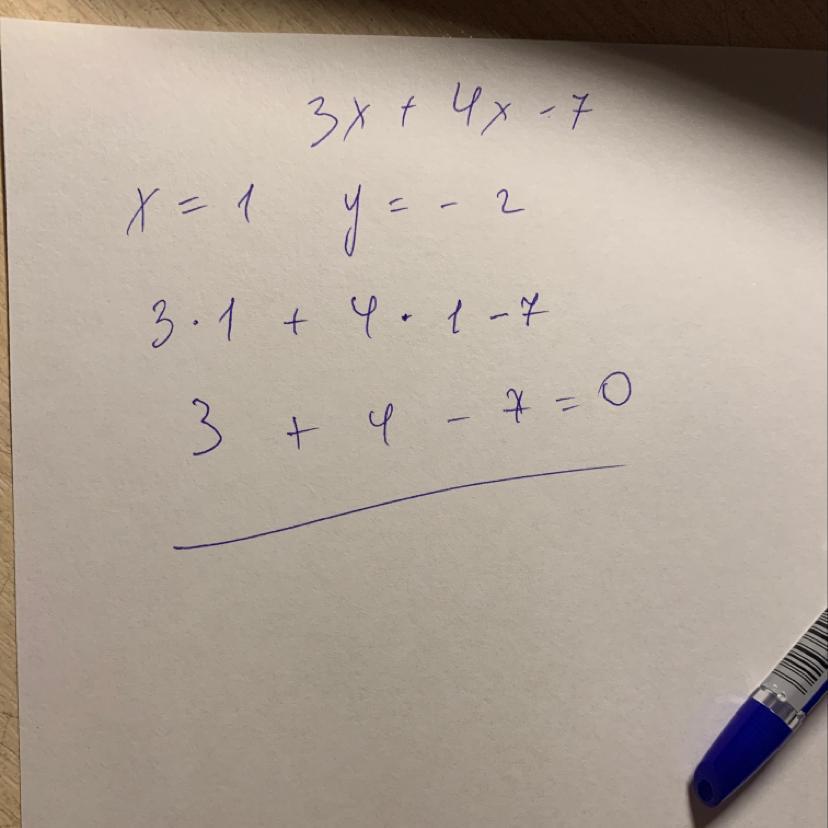 3x + 4x - 7
x = 1 y = - 2
3 · 1 + 4 · 1 - 7
3 + 4 - 7 = 0